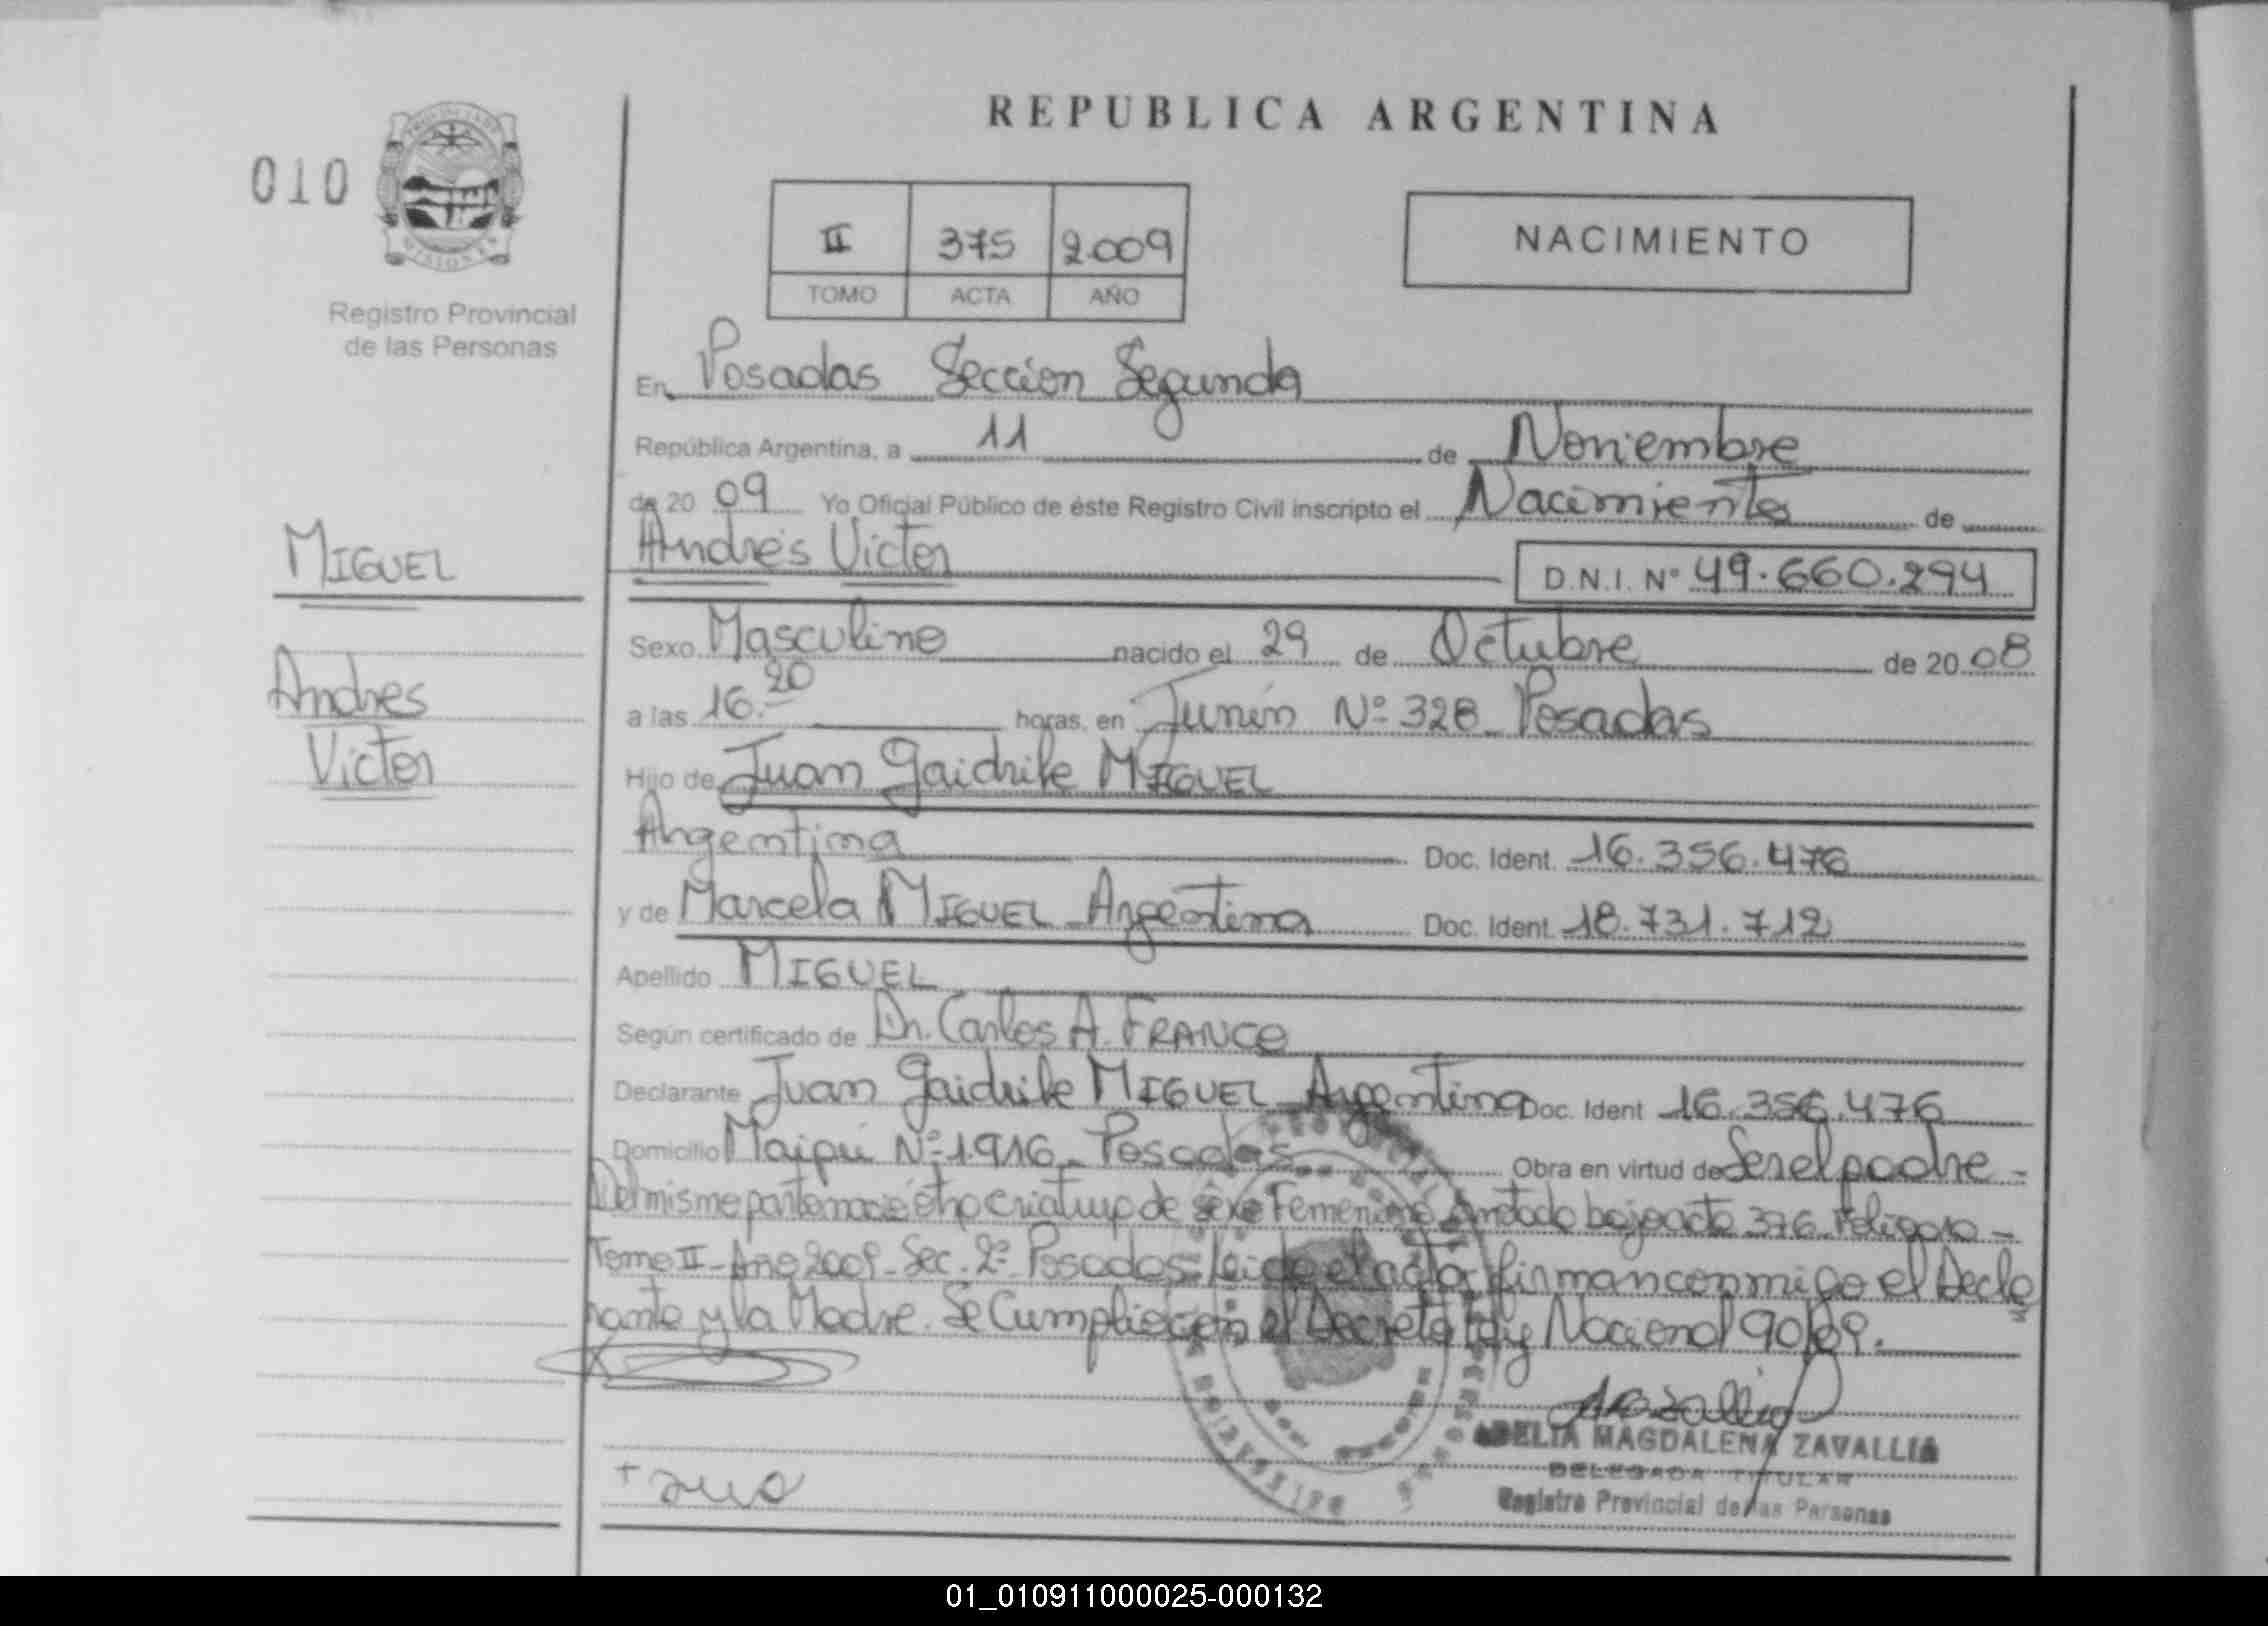 REPUBLICA ARGENTINA
010
II 375 2.009
TOMO ACTA AÑO
NACIMIENTO
Registro Provincial
de las Personas
En Posadas Sección Segunda
República Argentina, a 11 de Noviembre
de 20 09 Yo Oficial Público de éste Registro Civil inscripto el Nacimiento de
Andrés Victor
D.N.I. Nº 49.660.294
MIGUEL
Andres
Victor
Sexo Masculino nacido el 29 de Octubre de 20 08
a las 16.20 horas, en Junín Nº 328 Posadas
Hijo de Juan Gaidrike MIGUEL
Argentina Doc. Ident. 16.356.476
y de Marcela MIGUEL - Argentina Doc. Ident. 18.731.712
Apellido MIGUEL
Según certificado de Dr. Carlos A. FRANCO
Declarante Juan Gaidrike MIGUEL - Argentina Doc. Ident 16.356.476
Domicilio Maipú Nº 1.916 - Posadas Obra en virtud de Ser el padre -
Del mismo parto nació otra criatura de sexo Femenino Anotado bajo acta 376
Tomo II - Año 2009 - Sec. 2º Posadas - Leída el acta, firman conmigo el Decla
rante y la Madre. Se Cumplio con el Decreto Ley Nacional 90/09.
ADELIA MAGDALENA ZAVALLIA
DELEGADA TITULAR
Registro Provincial de las Personas
01_010911000025-000132